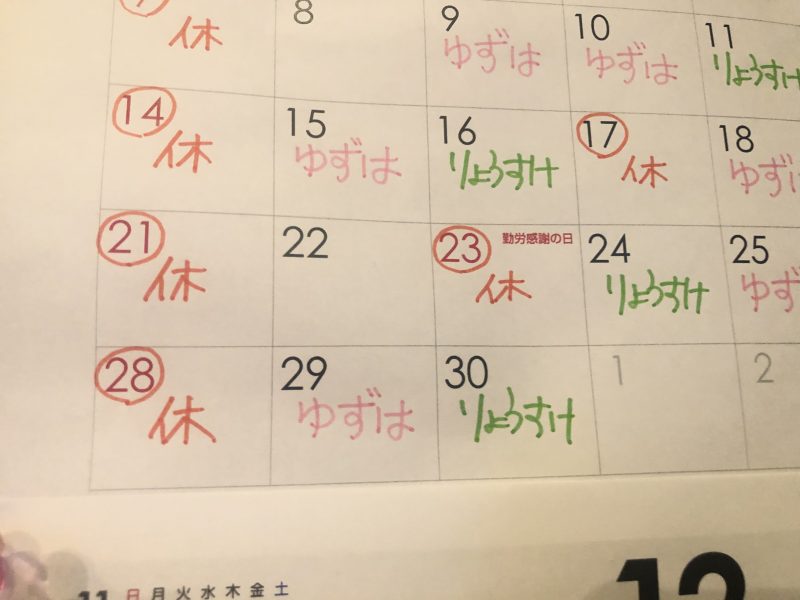 7 8 9 10 11
休 ゆずは ゆずは りょうすけ
14 15 16 17 18
休 ゆずは りょうすけ 休 ゆず
21 22 23 勤労感謝の日 24 25
休 休 りょうすけ ゆず
28 29 30 1 2
休 ゆずは りょうすけ
11 日 月 火 水 木 金 土
12